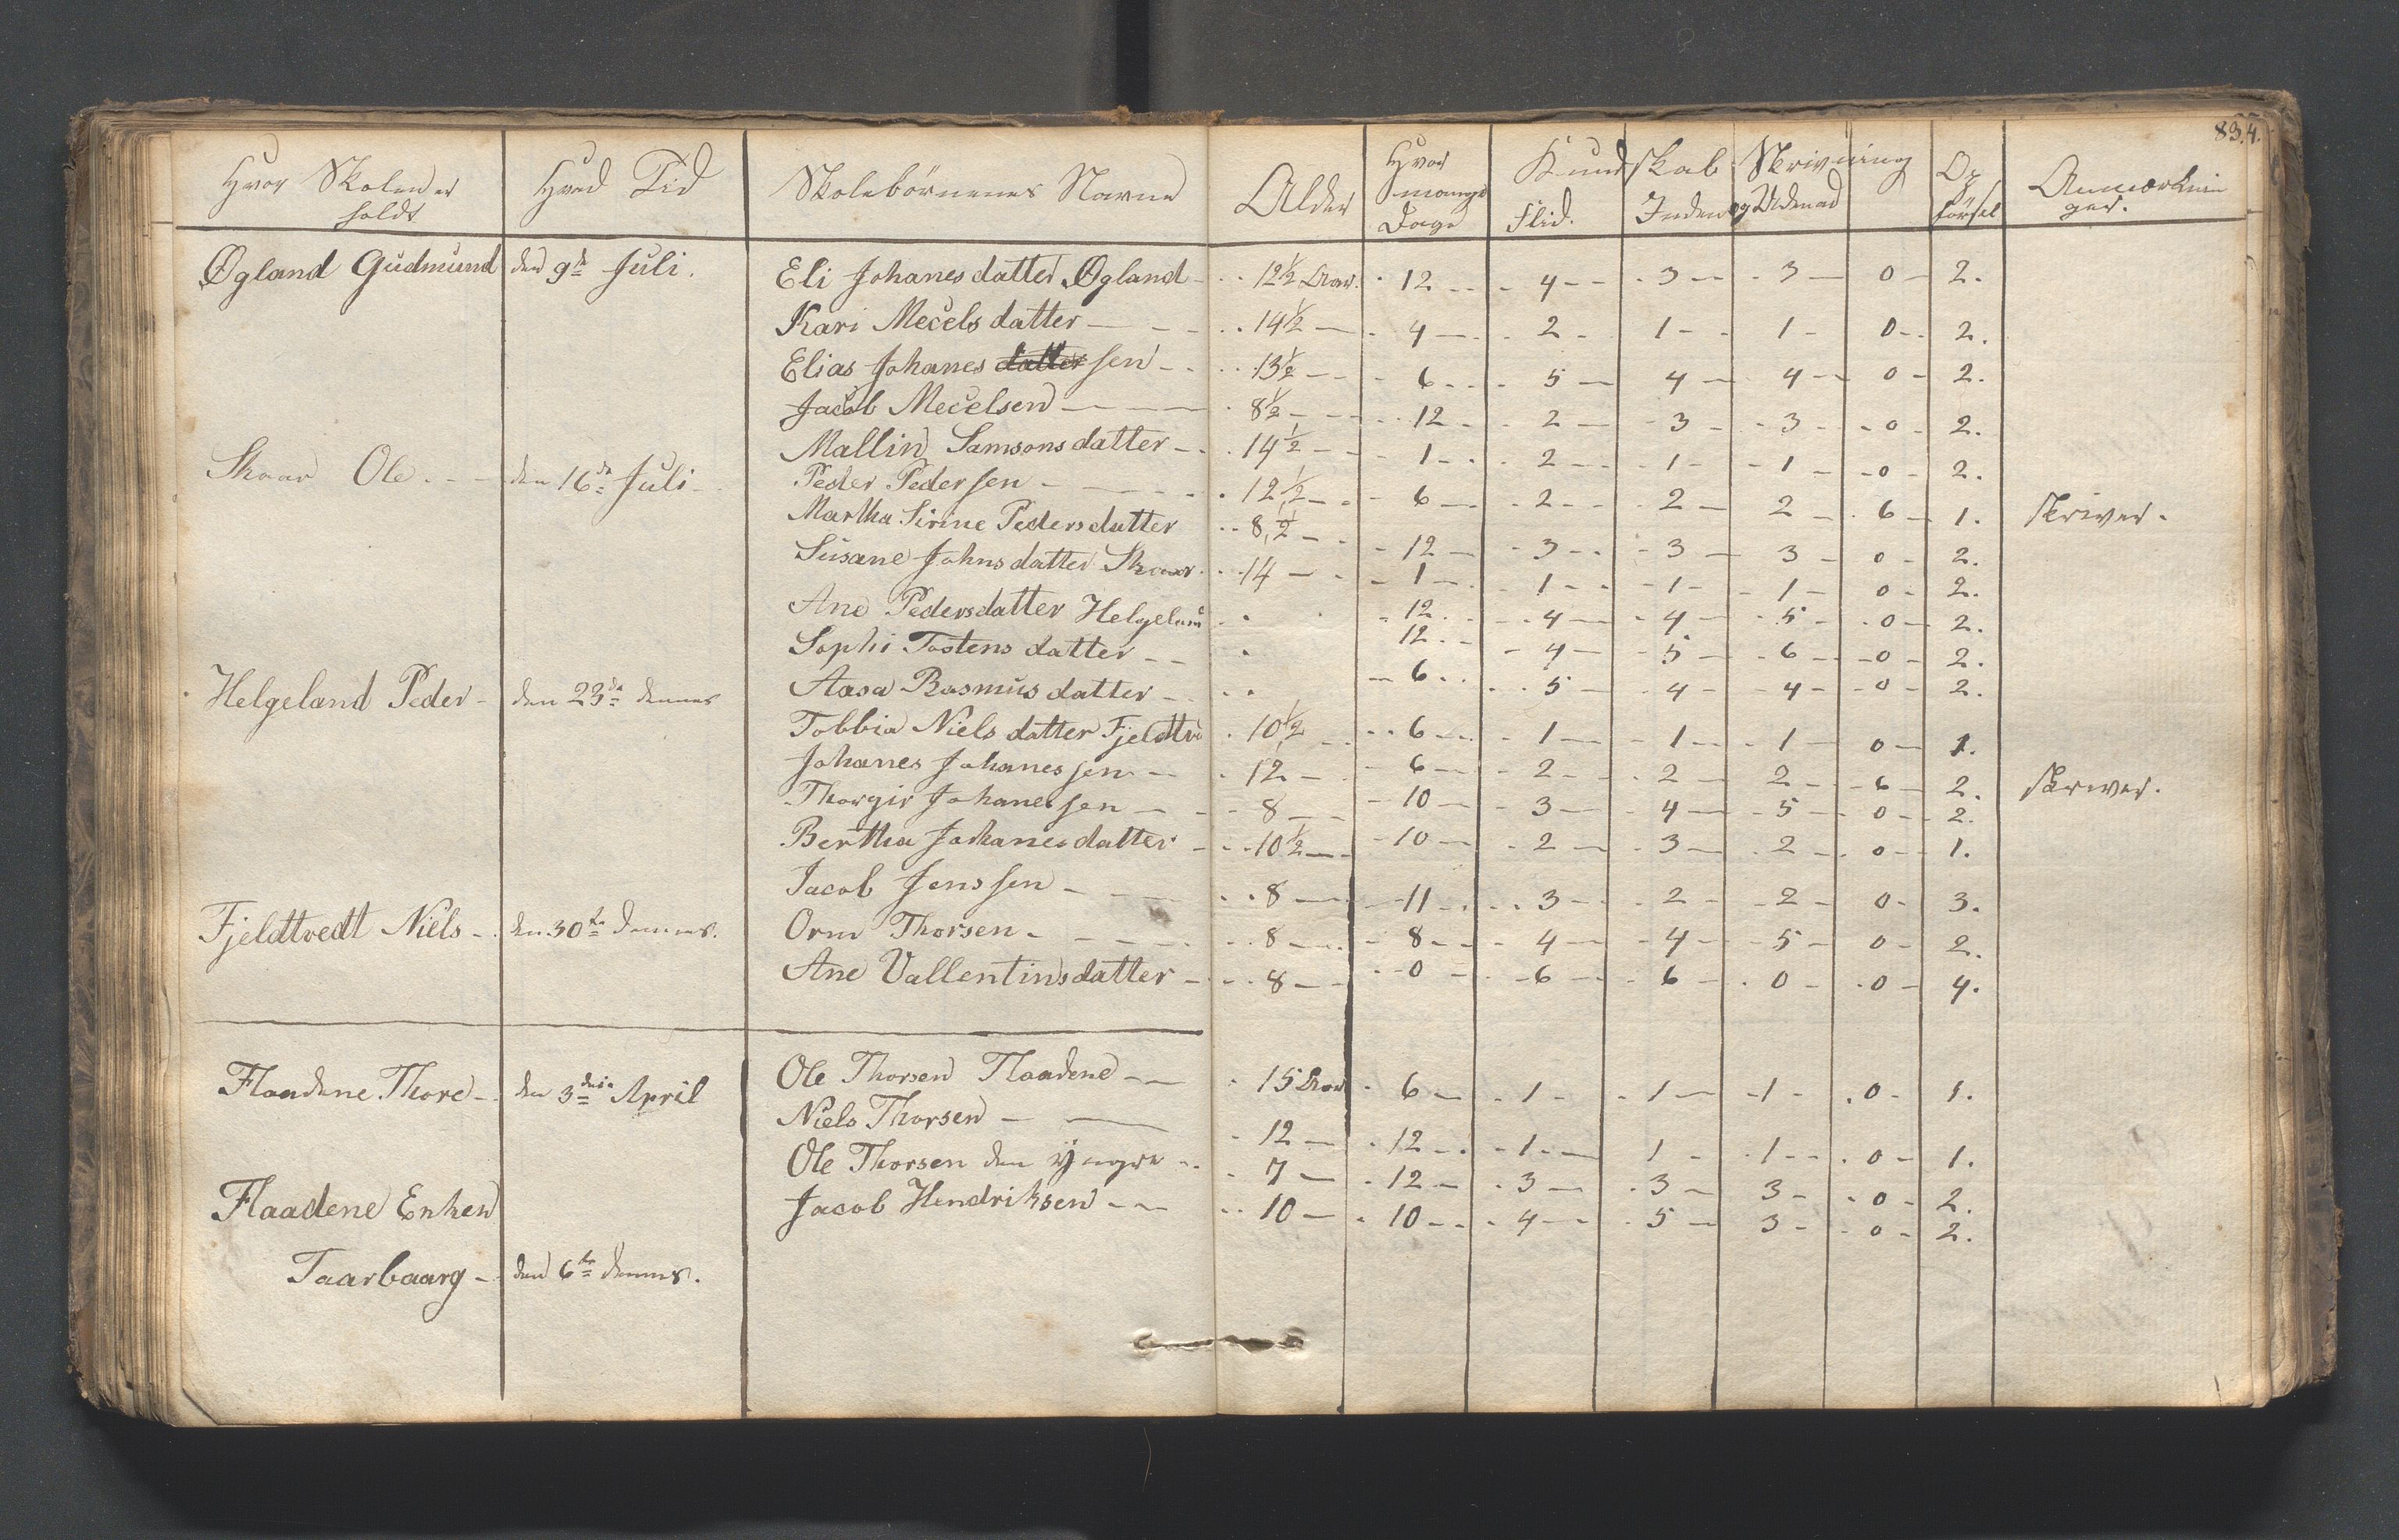 834.
Hvor Skolen er holdt | Hvad Tid | Skolebörnenes Navne | Alder | Hvor mange Dage | Flid. | Kundskab Inden og Udenad | Skrivning | Opförsel | Anmærkninger.
Øgland Gudmund | den 9de Juli. | Eli Johanesdatter Øgland | 12½ Aar. | 12 | 4 | 3 | 3 | 0 | 2.
Kari Mecelsdatter | 14½ | 4 | 2 | 1 | 1 | 0 | 2.
Elias Johanes datter sen | 13½ | 6 | 5 | 4 | 4 | 0 | 2.
Jacob Mecelsen | 8½ | 12 | 2 | 3 | 3 | 0 | 2.
Mallin Samsonsdatter | 14½ | 1 | 2 | 1 | 1 | 0 | 2.
Skaar Ole | den 16de Juli | Peder Pedersen | 12½ | 6 | 2 | 2 | 2 | 6 | 1. | skriver.
Martha Sirine Pedersdatter | 8½ | 12 | 3 | 3 | 3 | 0 | 2.
Susane Johnsdatter Skaar | 14 | 1 | 1 | 1 | 1 | 0 | 2.
Ane Pedersdatter | 12 | 4 | 4 | 5 | 0 | 2.
Sophi Tostensdatter | 12 | 4 | 5 | 6 | 0 | 2.
Helgeland Peder | den 23de dennes | Aasa Rasmusdatter | 6 | 5 | 4 | 4 | 0 | 2.
Tobbia Nielsdatter | 10½ | 6 | 1 | 1 | 1 | 0 | 1.
Johanes Johanessen | 12 | 6 | 2 | 2 | 2 | 6 | 2. | skriver.
Thorgir Johanessen | 8 | 10 | 3 | 4 | 5 | 0 | 2.
Bertha Johanesdatter | 10½ | 10 | 2 | 3 | 2 | 0 | 1.
Jacob Jenssen | 8 | 11 | 3 | 2 | 2 | 0 | 3.
Fjeldtvedt Niels | den 30te dennes. | Orm Thorsen | 8 | 8 | 4 | 4 | 5 | 0 | 2.
Ane Vallentinsdatter | 8 | 0 | 6 | 6 | 0 | 0 | 4.
Flaadene Thore | den 3die April | Ole Thorsen Flaadene | 15 Aar | 6 | 1 | 1 | 1 | 0 | 1.
Niels Thorsen | 12 | 12 | 1 | 1 | 1 | 0 | 1.
Ole Thorsen den yngre | 7 | 12 | 3 | 3 | 3 | 0 | 2.
Flaadene Enken | Jacob Hendriksen | 10 | 10 | 4 | 5 | 3 | 0 | 2.
Taarbaarg | den 6te dennes.